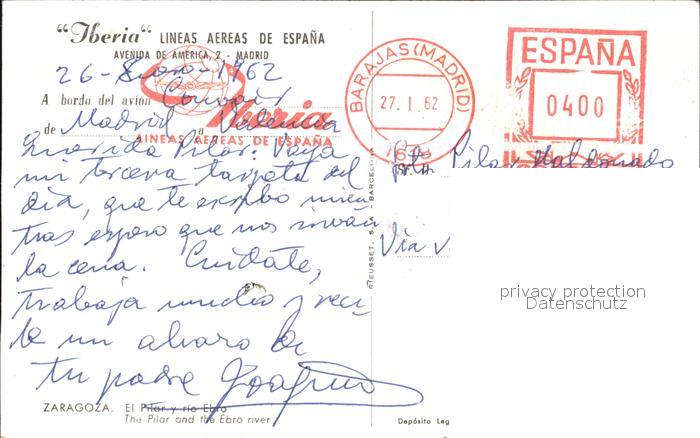 "Iberia" LINEAS AEREAS DE ESPAÑA
AVENIDA DE AMERICA, 2. - MADRID
26-Enero-1962
A bordo del avión Convair
de Madrid a Valencia
Iberia
LINEAS AEREAS DE ESPAÑA
Querida Pilar: Vaya
mi tercera tarjeta del
día, que te escribo mien
tras espero que nos sirvan
la cena. Cuídate,
trabaja mucho y reci
be un abrazo de
tu padre Joaquín
ZARAGOZA. El Pilar y río Ebro
The Pilar and the Ebro river
BARAJAS (MADRID)
27. I. 62
ESPAÑA
0400
Srta. Pilar Maldonado
Vía
S. A. BARCELONA
Depósito Leg
privacy protection
Datenschutz